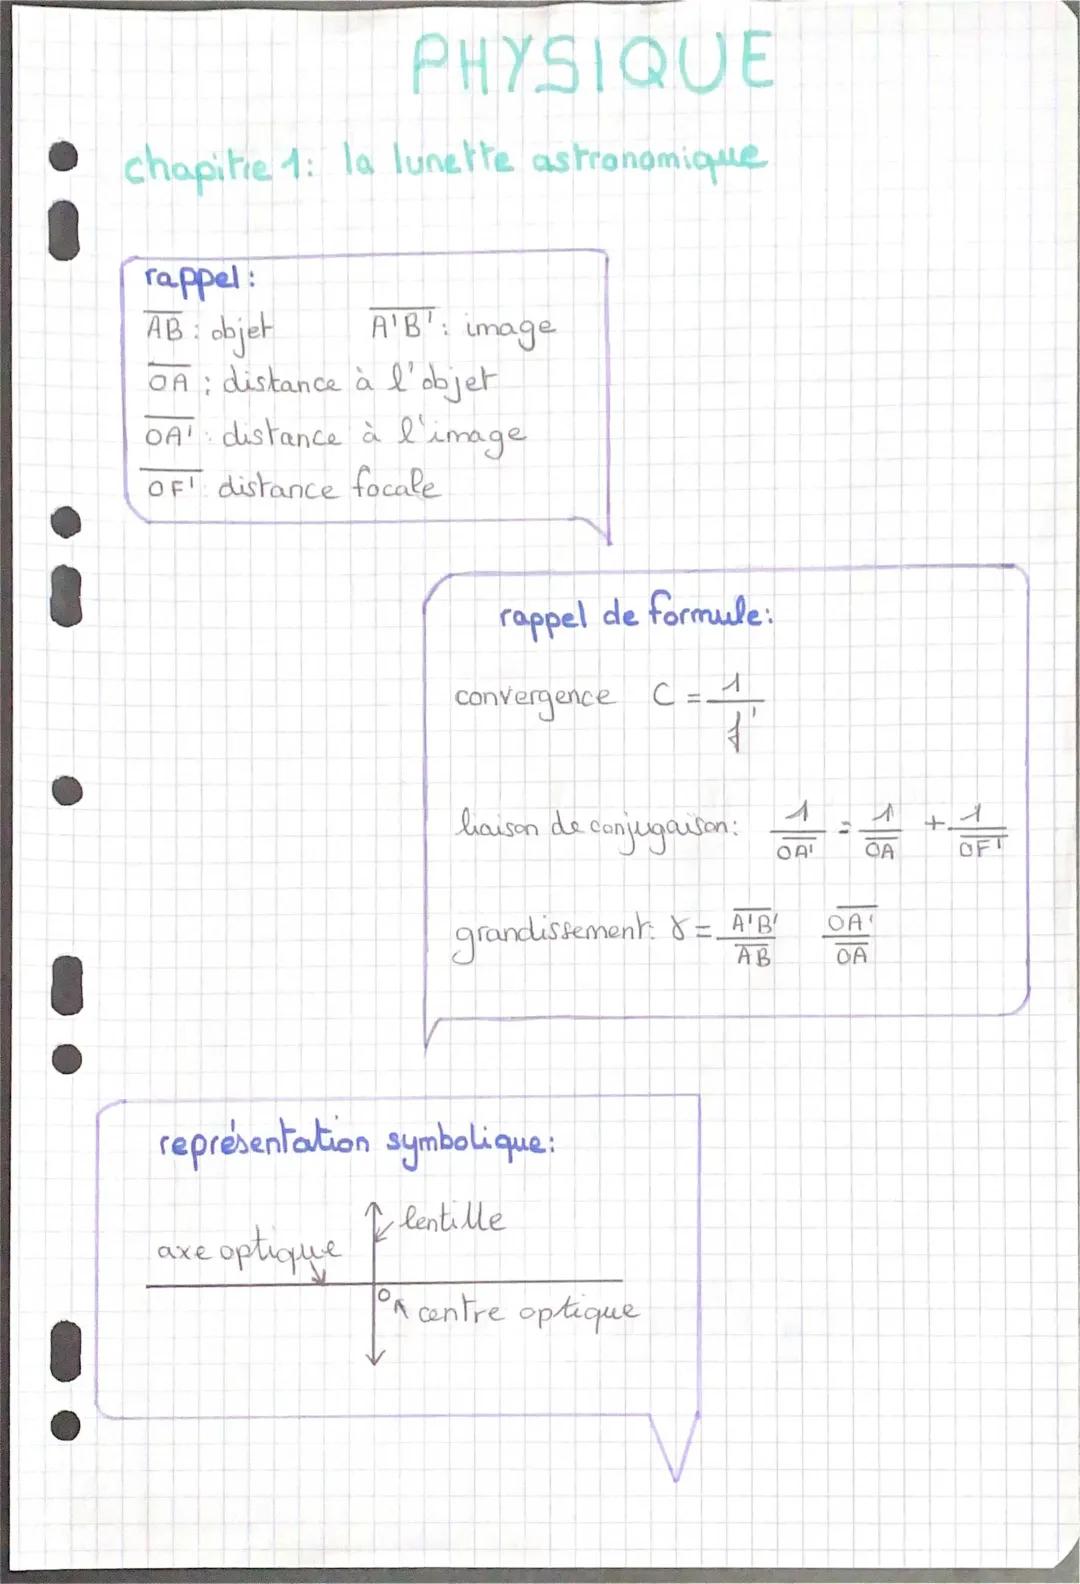 PHYSIQUE
chapitre 1: la lunette astronomique
rappel:
A̅B̅ : objet A̅'B̅' : image
O̅A̅ : distance à l'objet
O̅A̅' : distance à l'image
O̅F̅' : distance focale
rappel de formule:
convergence C = 1/f'
liaison de conjugaison: 1/O̅A̅' = 1/O̅A̅ + 1/O̅F̅'
grandissement: γ = A̅'B̅'/A̅B̅ O̅A̅'/O̅A̅
représentation symbolique:
lentille
axe optique
O centre optique